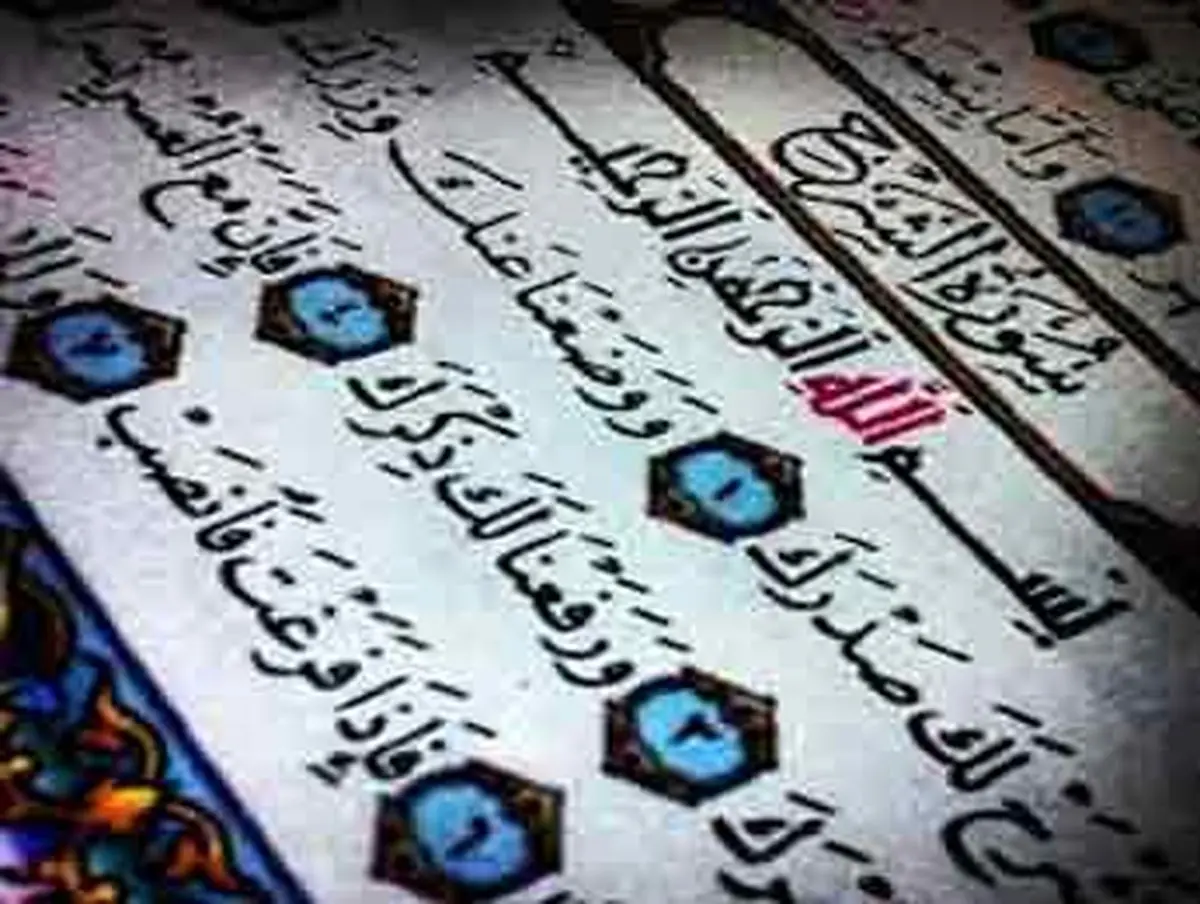 وَأَمَّا
سُورَةُ الشَّرْحِ
بِسْمِ اللَّهِ الرَّحْمَٰنِ الرَّحِيمِ
لَكَ صَدْرَكَ ١ وَوَضَعْنَا عَنكَ وِزْرَكَ
٣ وَرَفَعْنَا لَكَ ذِكْرَكَ ٤ فَإِنَّ مَعَ الْعُسْرِ
٦ فَإِذَا فَرَغْتَ فَانصَبْ ٧